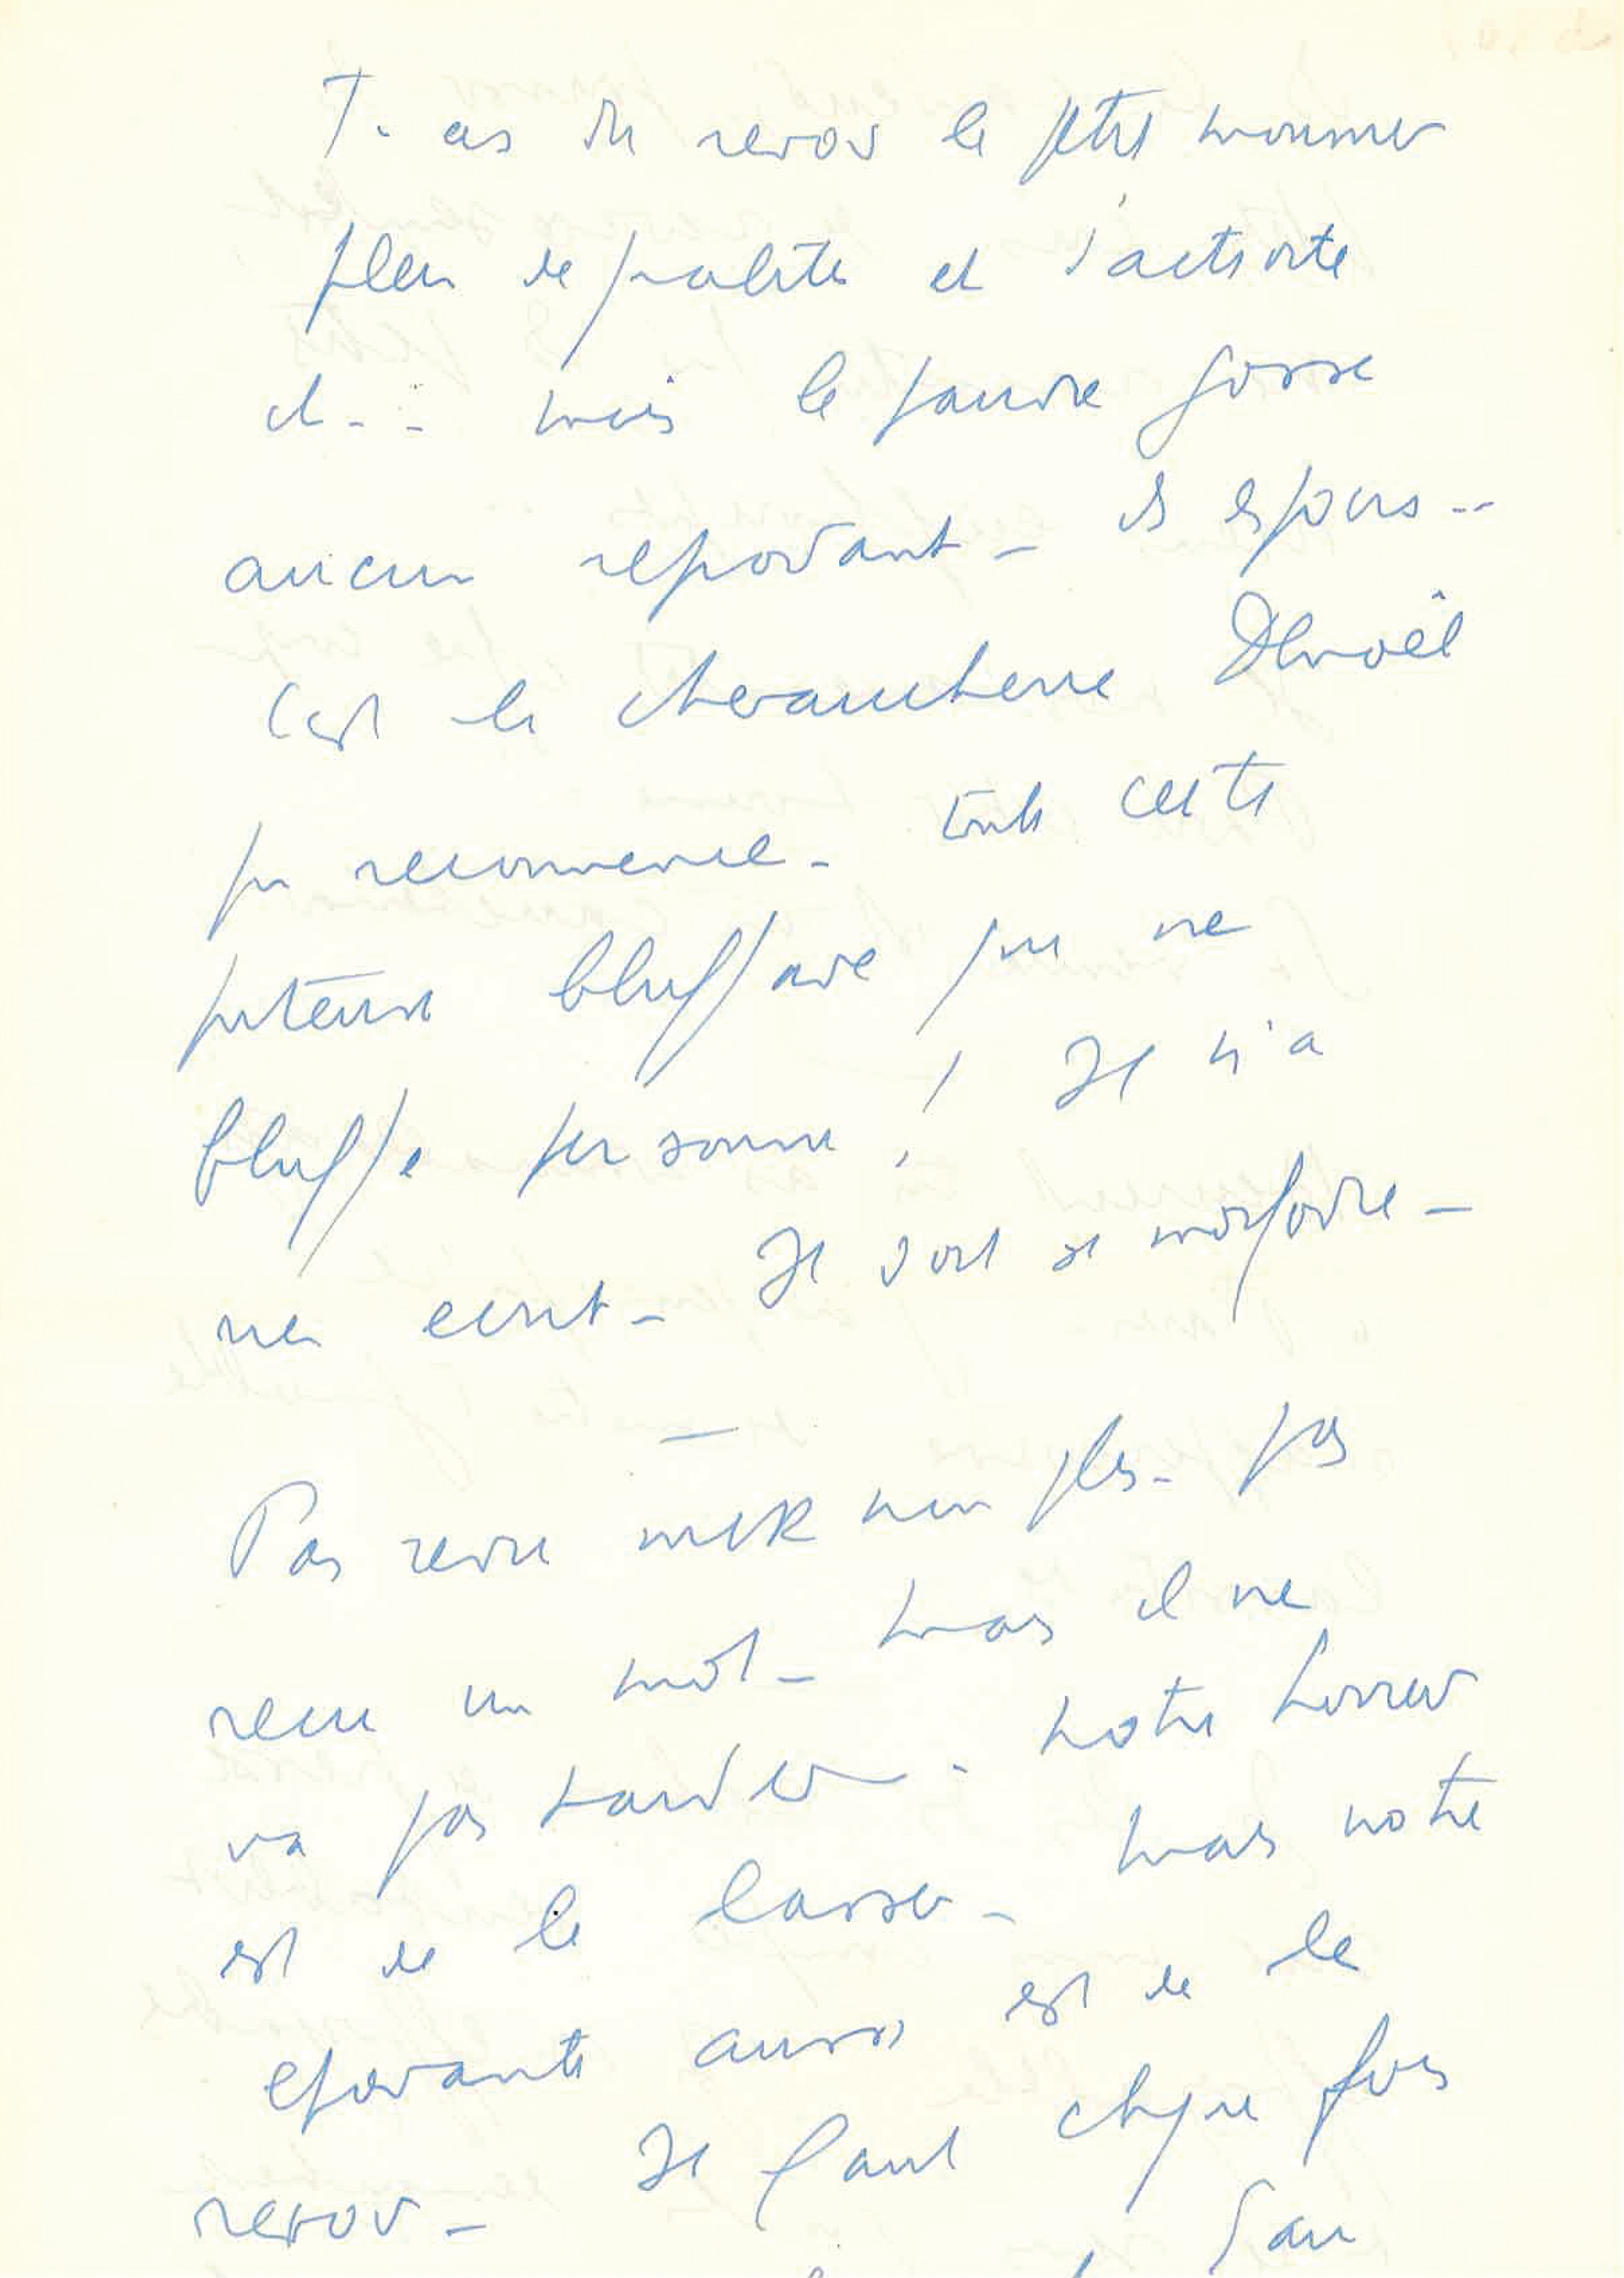 Tu as du revoir le petit monnier
plein de qualités et d'activité
et... mais le pauvre gosse
aucun répondant - et espoirs --
C'est la chevaucherie Denoël
qui recommence - toute cette
juteuse bluffarde qui ne
bluffe personne ! Il n'a
rien écrit - Il doit se morfondre -
Pas revu Mck non plus - pas
reçu un mot - mais il ne
va pas tarder - notre horreur
est de le lasser - mais notre
épouvante aussi est de le
revoir - Il faut chaque fois